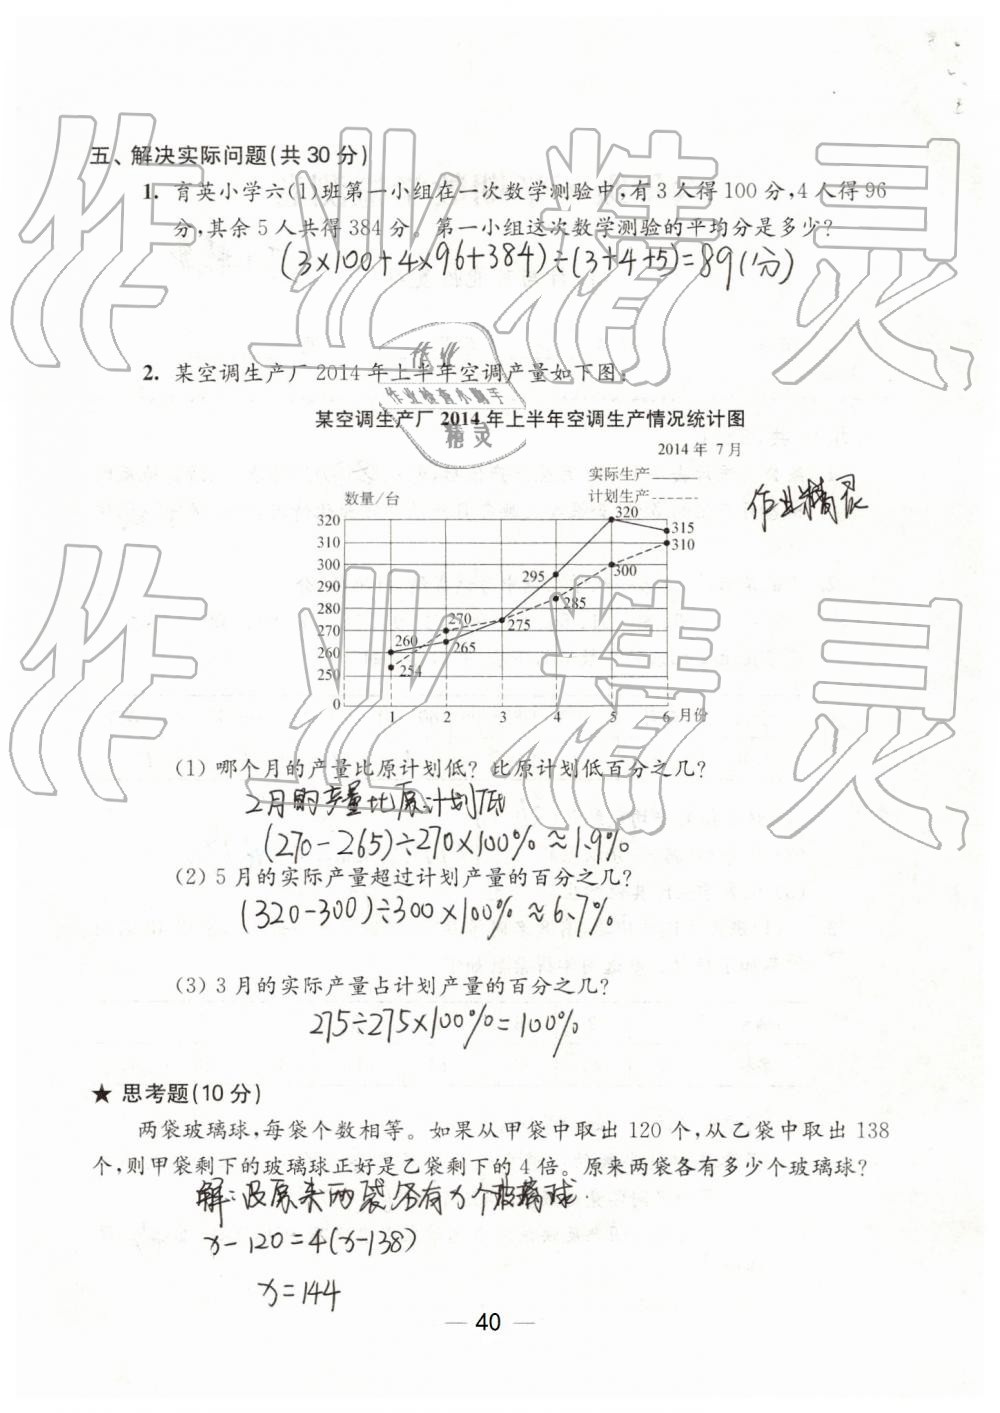 五、解决实际问题(共30分)
1. 育英小学六(1)班第一小组在一次数学测验中,有3人得100分,4人得96
分,其余5人共得384分。第一小组这次数学测验的平均分是多少?
(3×100+4×96+384)÷(3+4+5)=89(分)
2. 某空调生产厂2014年上半年空调产量如下图:
作业
作业检查小助手
精灵
某空调生产厂2014年上半年空调生产情况统计图
2014年7月
实际生产
计划生产
作业精灵
数量/台
320
310
300
290
280
270
260
250
0
260
254
270
265
275
295
285
320
300
315
310
1 2 3 4 5 6 月份
(1) 哪个月的产量比原计划低?比原计划低百分之几?
2月的产量比原计划低
(270-265)÷270×100%≈1.9%
(2) 5月的实际产量超过计划产量的百分之几?
(320-300)÷300×100%≈6.7%
(3) 3月的实际产量占计划产量的百分之几?
275÷275×100%=100%
★ 思考题(10分)
两袋玻璃球,每袋个数相等。如果从甲袋中取出120个,从乙袋中取出138
个,则甲袋剩下的玻璃球正好是乙袋剩下的4倍。原来两袋各有多少个玻璃球?
解:设原来两袋各有x个玻璃球.
x-120=4(x-138)
x=144
— 40 —
作业精灵
作业精灵